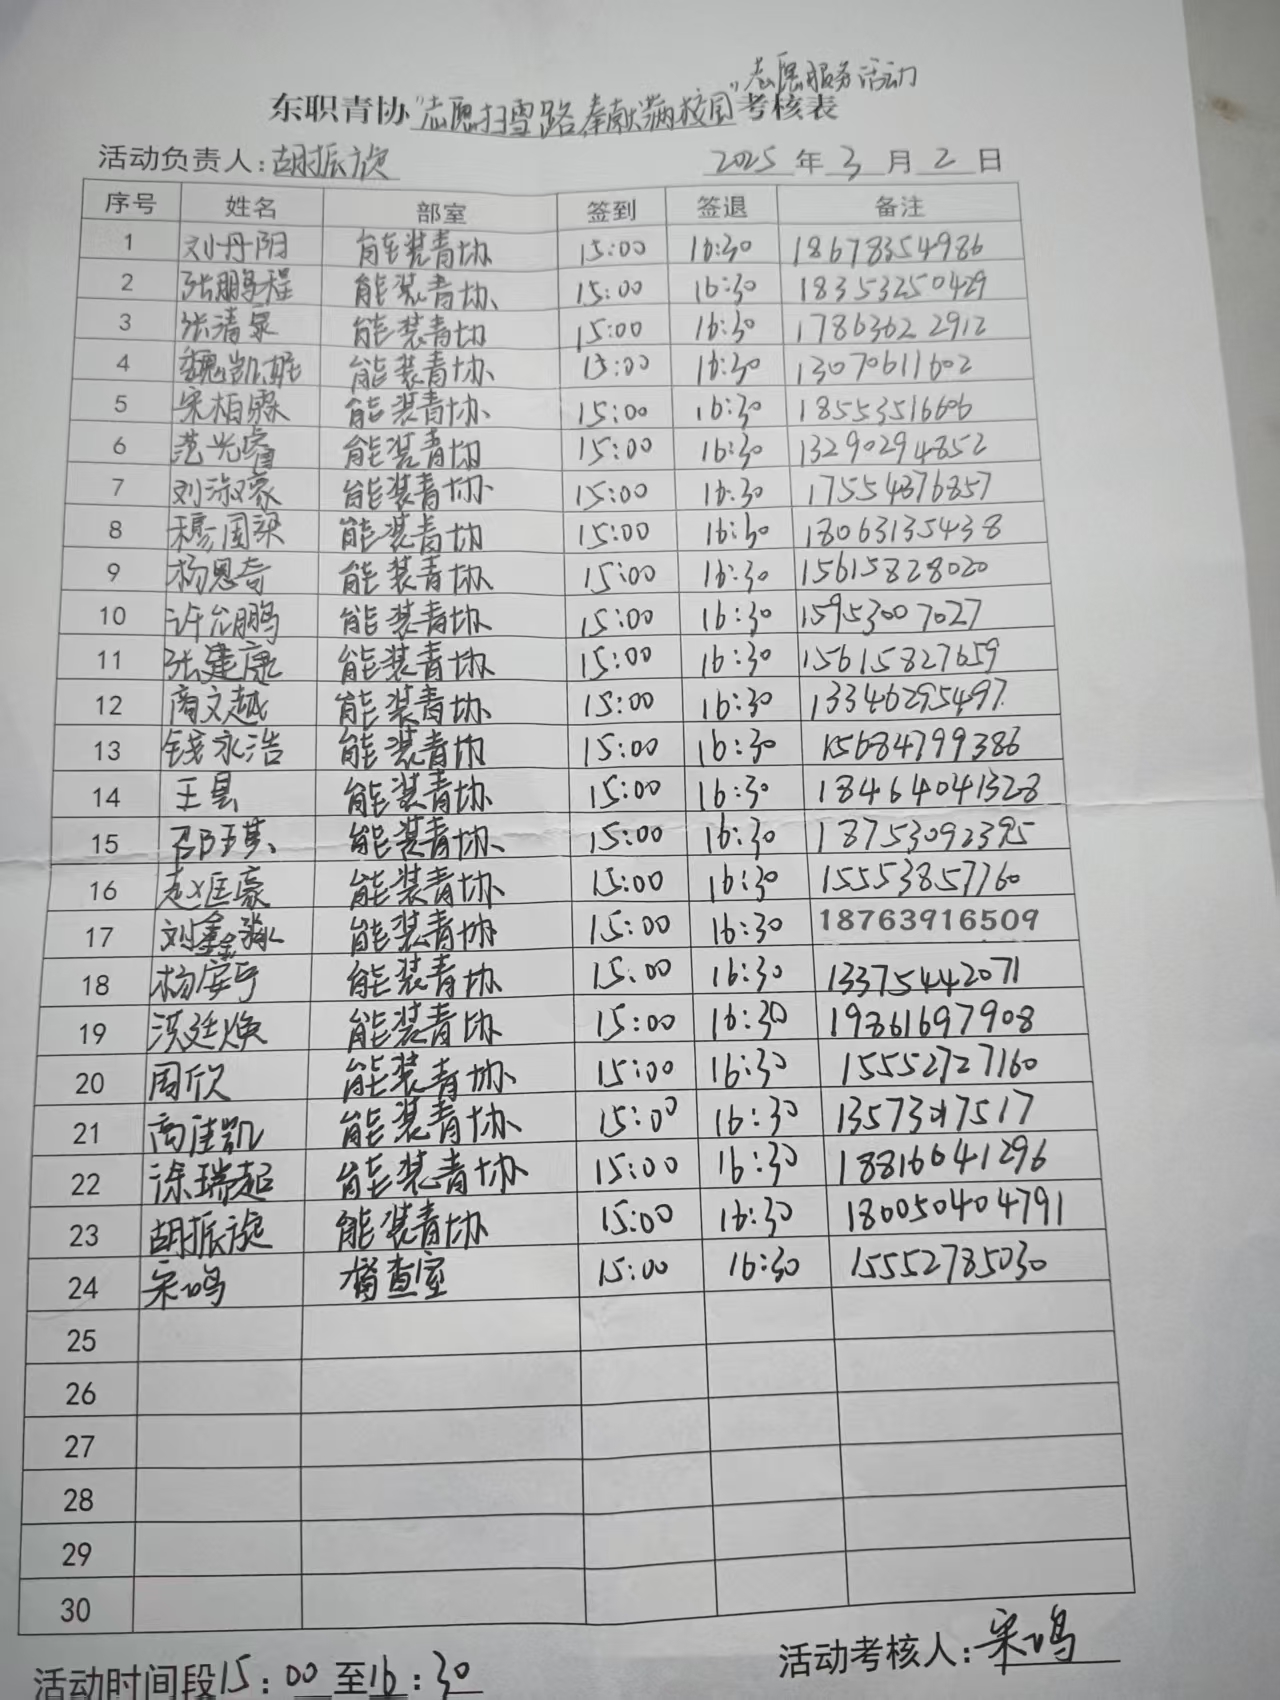 志愿服务活动
东职青协"志愿扫雪路,奉献满校园"考核表
活动负责人:胡振旋 2025年3月2日
序号 姓名 部室 签到 签退 备注
1 刘丹阳 能装青协 15:00 16:30 18678354986
2 张鹏程 能装青协 15:00 16:30 18353250429
3 张清泉 能装青协 15:00 16:30 17863622912
4 魏凯旋 能装青协 15:00 16:30 13070611602
5 宋柏霖 能装青协 15:00 16:30 18553516606
6 范光睿 能装青协 15:00 16:30 13290294852
7 刘淑豪 能装青协 15:00 16:30 17554876857
8 穆国梁 能装青协 15:00 16:30 18063135438
9 杨恩奇 能装青协 15:00 16:30 15615828020
10 许允鹏 能装青协 15:00 16:30 15953007027
11 张建康 能装青协 15:00 16:30 15615827659
12 商文越 能装青协 15:00 16:30 13346295497
13 钱永浩 能装青协 15:00 16:30 15684799386
14 王昊 能装青协 15:00 16:30 18464041328
15 能装青协 15:00 16:30 18753092395
16 赵匡豪 能装青协 15:00 16:30 15553857760
17 刘鑫淼 能装青协 15:00 16:30 18763916509
18 杨安宁 能装青协 15:00 16:30 13375442071
19 洪廷焕 能装青协 15:00 16:30 19861697908
20 周欣 能装青协 15:00 16:30 15552727160
21 高佳凯 能装青协 15:00 16:30
22 徐瑞超 能装青协 15:00 16:30 18816041296
23 胡振旋 能装青协 15:00 16:30 180050404791
24 宋鸣 督查室 15:00 16:30 15552785030
25
26
27
28
29
30
活动考核人:宋鸣
活动时间段15:00至16:30